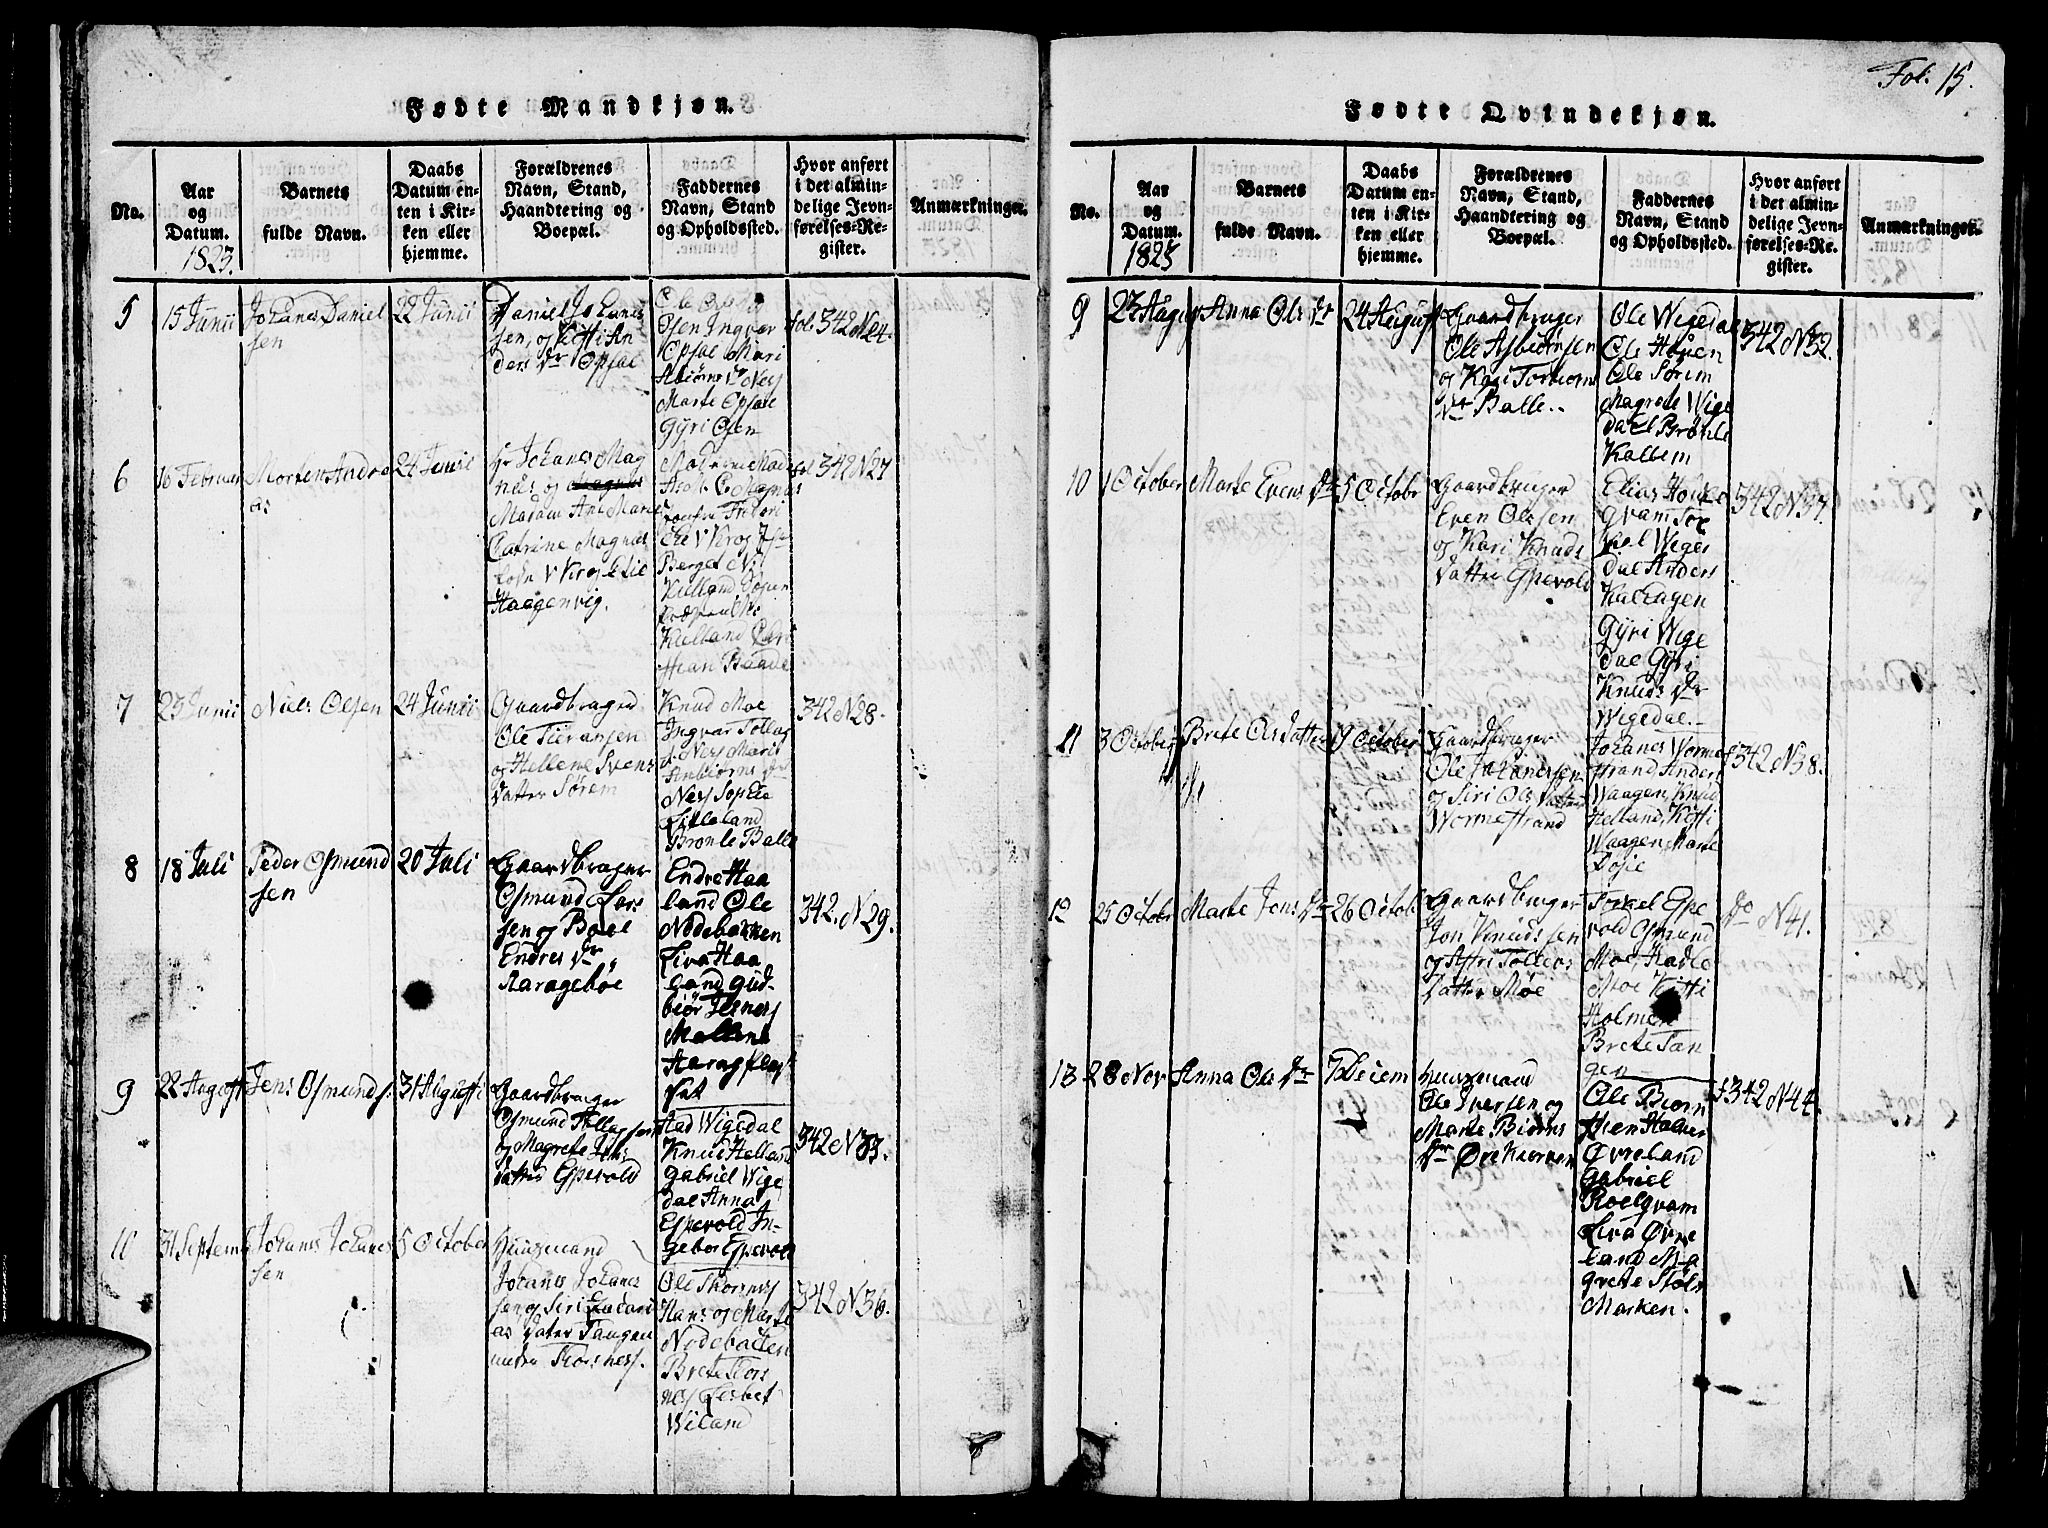 Fødte Mandkjøn.
No.
Aar
og
Datum.
1823.
Barnets
fulde Navn.
Daabs
Datum en-
ten i Kir-
ken eller
hjemme.
Forældrenes
Navn, Stand,
Haandtering og
Boepæl.
Faddernes
Navn, Stand
og Opholdssted.
Hvor anført
i det almin-
delige Jevn-
førelses-Re-
gister.
Anmærkninger.
5
15 Junii
Johanes Daniel
sen
22 Junii
Daniel Johanes
sen, og Kitti An
ders Dr Opsal
Osen Ingvar
Opsal Mari
Asbiørns Dr Nesf
Marte Opsal
Gÿri Osen
fol 342 N24.
6
16 Februar
Morten Andre
as
Hr Johanes Mag
nus og
Madam Ane Marie
Catrine Magnus
Haagenvig.
Berget
Kielland
Kielland
fol 342 N27
7
23 Junii
Niels Olsen
24 Junii
Gaardbruger
Ole
og Hellene Svens
Datter Sørem
Knud Moe
Ingvar Tollag
s. Nesf Mari
Asbiorns Dr
Nesf Sophia
Lilleland
Bronle Balle
342 N28.
8
18 Juli
Peder Osmund
sen
20 Juli
Gaardbruger
Osmund Lars
sen og Boel
Endres Dr
Aaragebøe
Endre Haa
land Ole
Nodebakken
Liva Haa
land Gud-
biør
Mallene
342. N29.
9
22 Augosti
Jens Osmunds.
31 Augusti
Gaardbruger
Osmund Tollagsen
og Magrete Jens
Datter Espevold
Aad Wigedal
Knud Helland
Gabriel Wige
dal Anna
Espevold In-
gebor Espevold
342 N33.
11
31 Septemb
Johanes Johanes
sen
5 October
Huusmand
Johanes Johanes
sen og Siri Zacari
as Dater Tangen
under Thorsnesf.
Ole Thorsnesf
Hans og Marte
Nodebakken
Brete Tors
nesf Lisbet
Wiland
342 N36.
Fol. 15.
Fødte Qvindekjøn.
No.
Aar
og
Datum.
1823
Barnets
fulde Navn.
Daabs
Datum en-
ten i Kir-
ken eller
hjemme.
Forældrenes
Navn, Stand,
Haandtering og
Boepæl.
Faddernes
Navn, Stand
og Opholdssted.
Hvor anført
i det almin-
delige Jevn-
førelses-Re-
gister.
Anmærkninger.
9
23 Augus
Anna Ols Dr
24 August
Gaardbruger
Ole Asbiørnsen
og Kari Torbiorns
Dr Balle..
Ole Wigedal
Ole Haaen
Ole Sørim
Magrete Wige
dael Bronle
Kalhem
342 N32.
10
1 October
Marte Evens Dr
5 Octobr
Gaardbruger
Even Olesen
og Kari Knuds
Datter Espevold
Elias Houke
Gvam Tor
kel Wige
dal Anders
Kalhagen
Gÿri Wige
dal Gÿri
Knuds Dr
Wigedal.
342 N37.
11
3 October
Brete Ols Datter
19 October
Gaardbruger
Ole Johanessen
og Siri Ols Datter
Wormestrand
Johanes Worme
strand Anders
Waagen, Knud
Helland, Kitti
Waagen, Marte
Dosie
f 342 N38.
12
25 Octobr
Marte Jons Dr
26 Octob
Gaardbruger
Jon Knudssen
og Astri Tolleis
Datter Moe
Torkel Espe
vold Osmund
Moe, Hadle
Moe Kitti
Holmen
Brete Tan
gen
Do N41.
13
28 Nov
Anna Ols Dr
7 Deiem
Huusmand
Ole Iversen og
Marte Biorns
Dr Ørekaarven
Ole Biorn
Hien Halver
Øvreland
Gabriel
Roelgvam
Liva Øvre
land Ma
grete Støls
Marken.
f 342 N44.